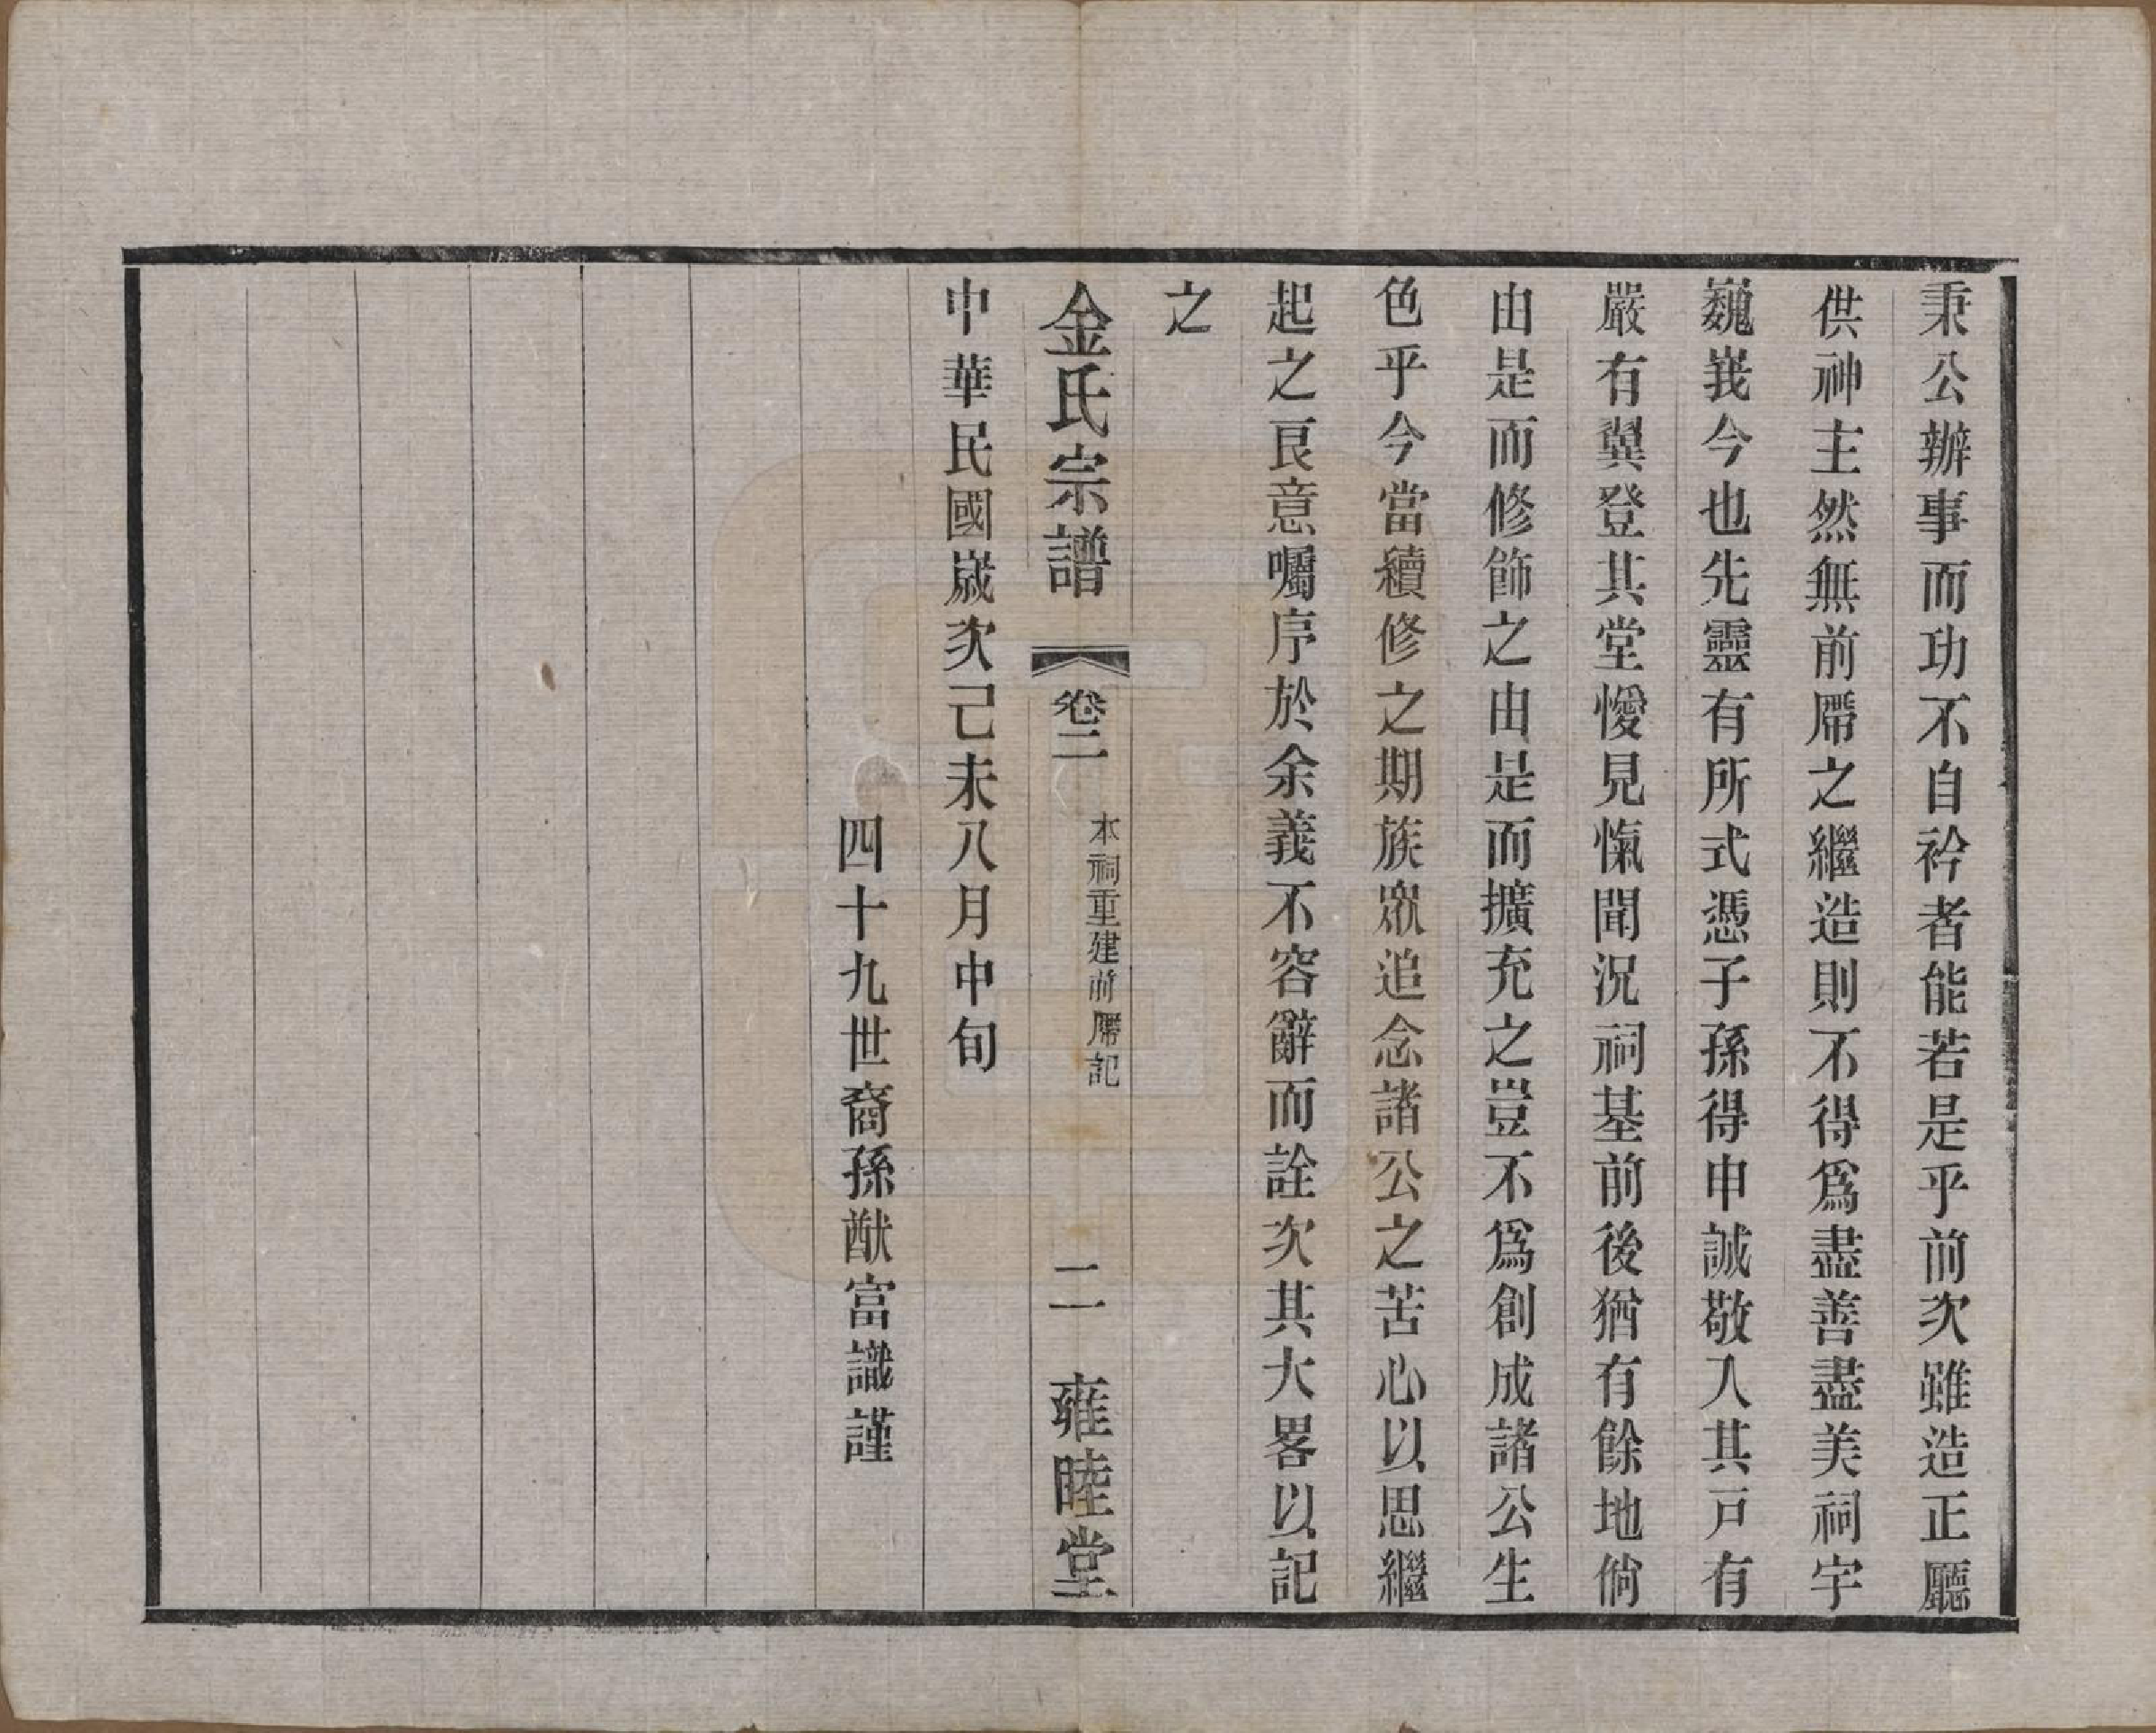 秉公辦事而功不自矜者能若是乎前次雖造正廳
供神主然無前厝之繼造則不得爲盡善盡美祠宇
巍峩今也先靈有所式憑子孫得申誠敬入其戸有
嚴有翼登其堂僾見愾聞況祠基前後猶有餘地倘
由是而修飾之由是而擴充之豈不爲創成諸公生
色乎今當續修之期族眾追念諸公之苦心以思繼
起之良意囑序於余義不容辭而詮次其大畧以記
之
金氏宗譜 卷二 本祠重建前厝記 二 雍睦堂
中華民國嵗次己未八月中旬
四十九世裔孫猷富識謹